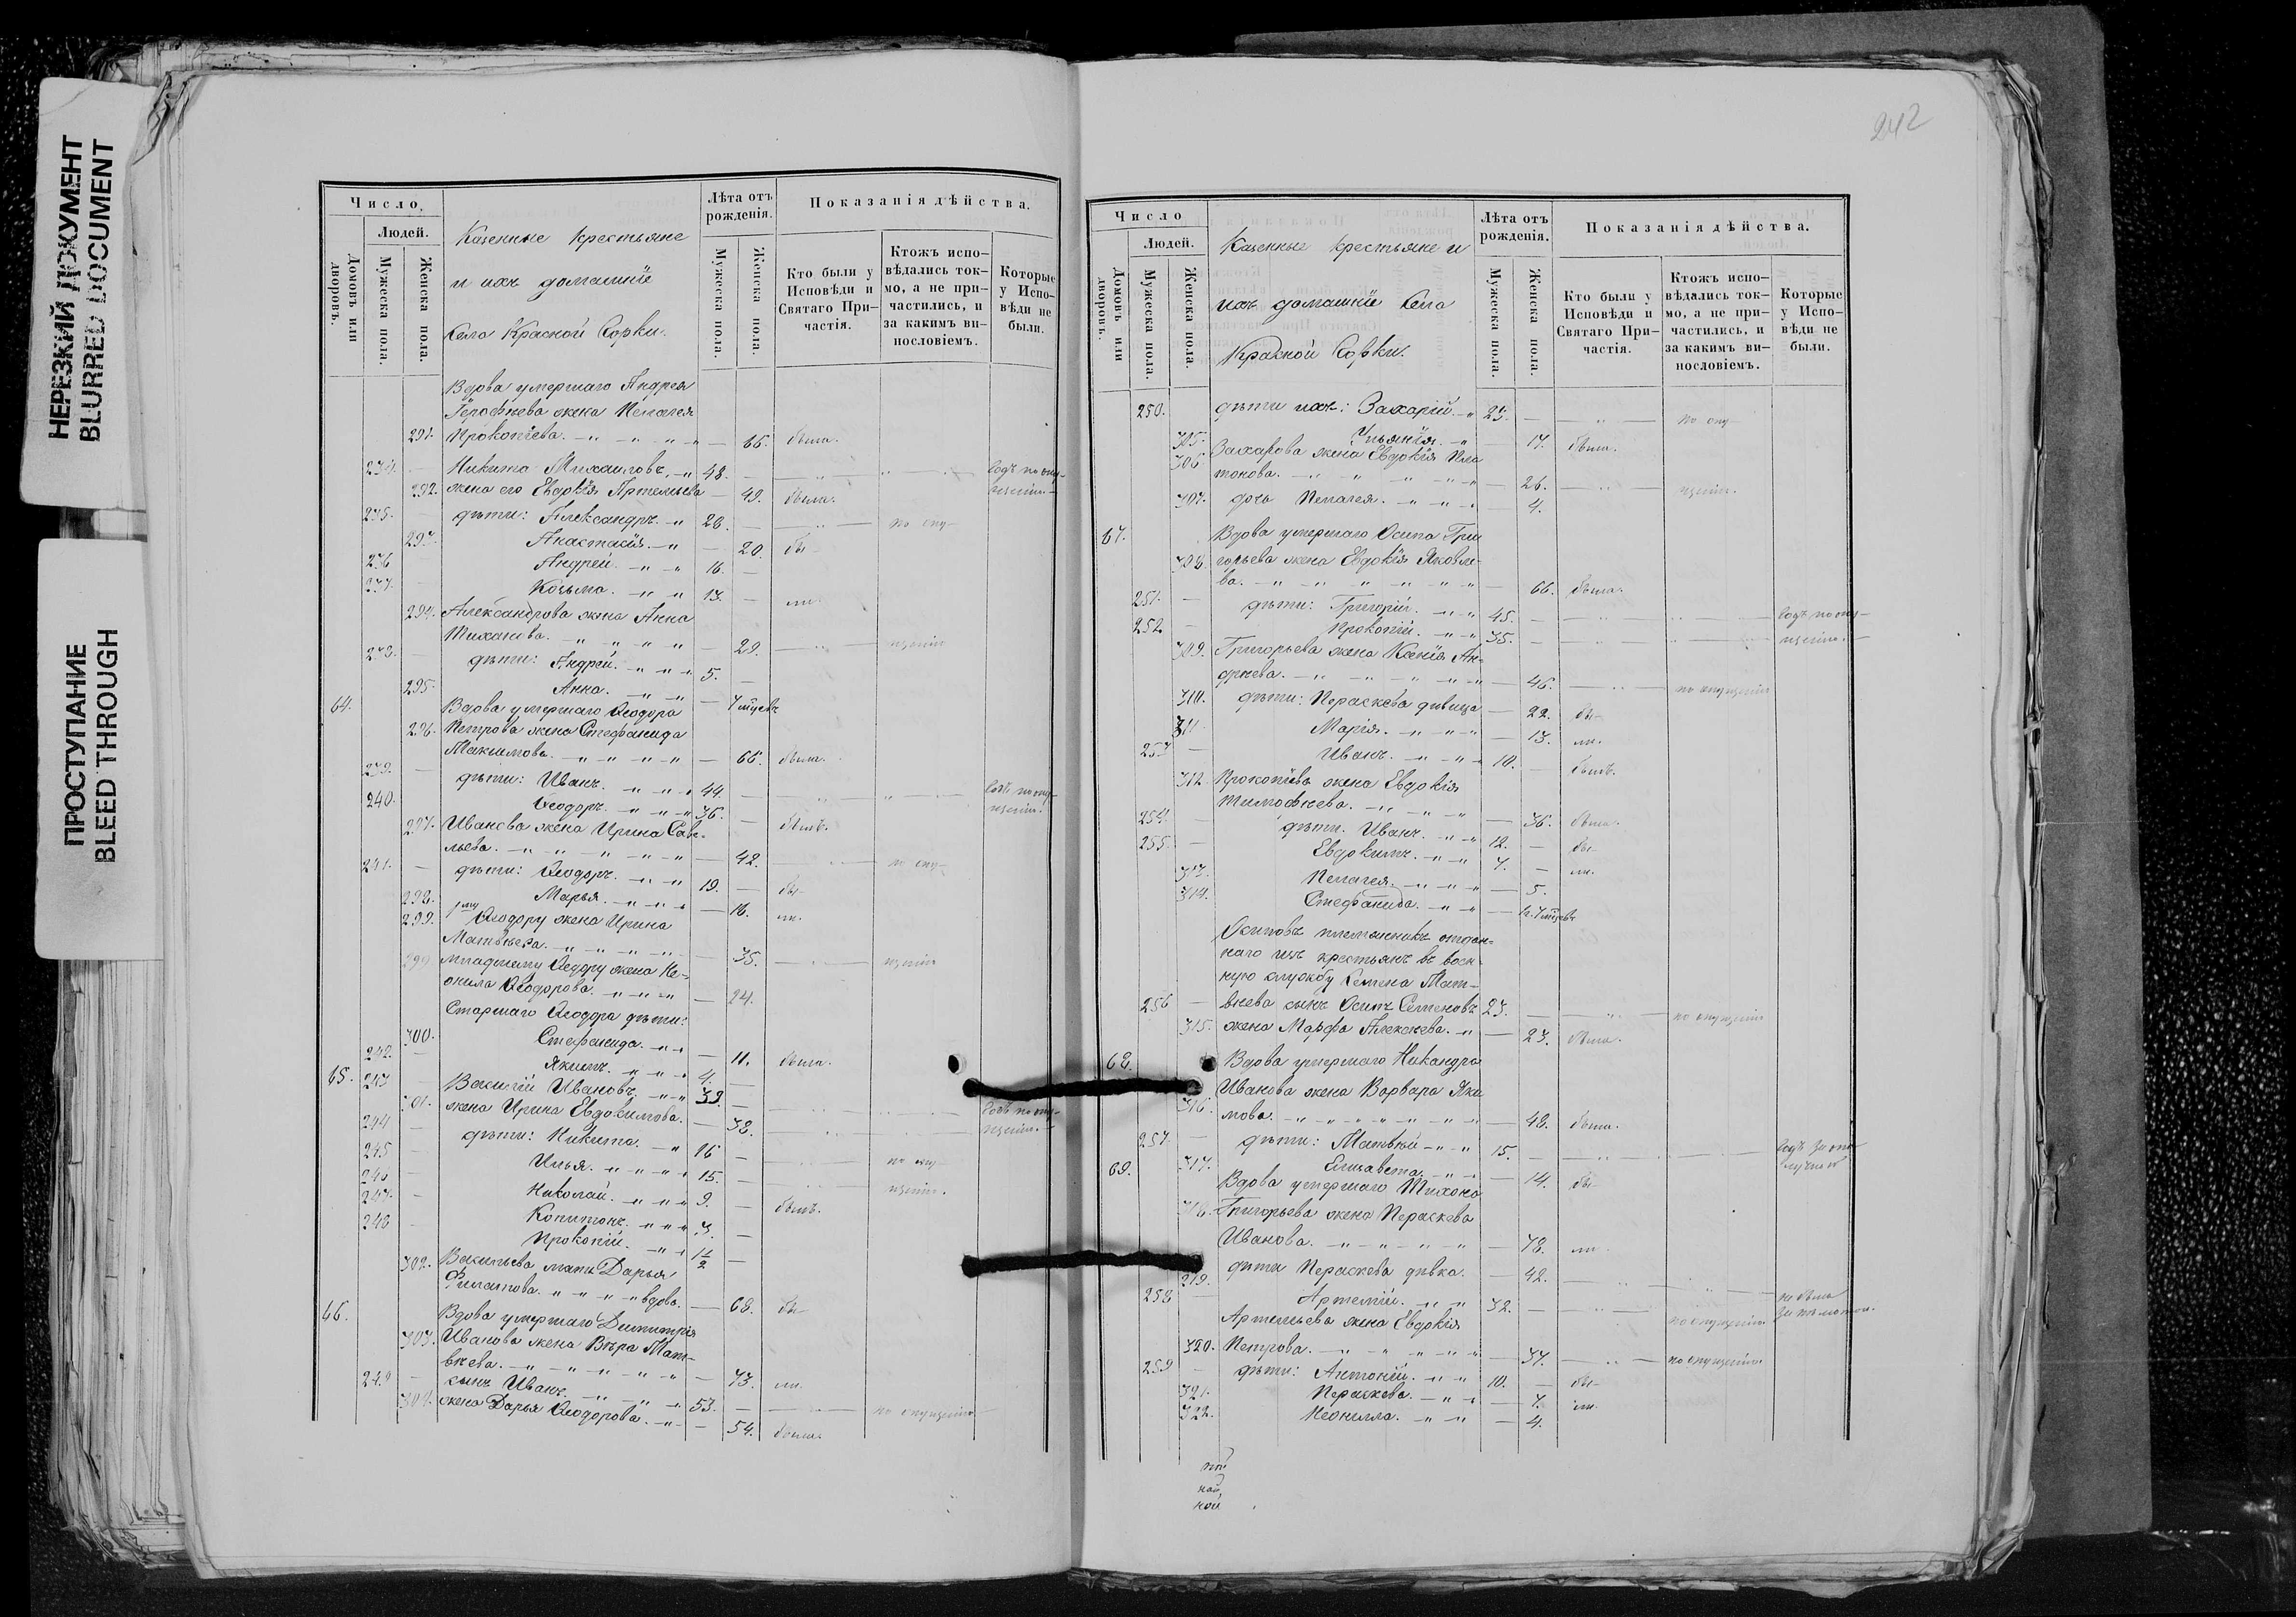 НЕРЕЗКИЙ ДОКУМЕНТ
BLURRED DOCUMENT
ПРОСТУПАНИЕ
BLEED THROUGH
Число.
Людей.
Домовъ или дворовъ.
Мужеска пола.
Женска пола.
Казенные крестьяне
и ихъ домашніе
Села Красной Горки.
Лѣта отъ рожденія.
Мужеска пола.
Женска пола.
Показанія дѣйства.
Кто были у Исповѣди и Святаго При-частія.
Ктожъ испо-вѣдались ток-мо, а не при-частились, и за какимъ ви-нословіемъ.
Которые у Испо-вѣди не были.
Вдова умершаго Андрея
Герофѣева жена Пелагея
291. Прокопіева. 65. была.
234. Никита Михаиловъ 48.
292. жена его Евдокія Артемьева 49. была.
235. дѣти: Александръ 28. по опу-
293. Анастасія 20. бы-
236 Андрей 16.
237. Козьма 13. ли.
294. Александрова жена Анна
29. щенію
238. дѣти: Андрей 5.
295. Анна. 7 мѣцевъ
64. Вдова умершаго Ѳеодора
296. Петрова жена Стефанида
Максимова. 66. была.
239. дѣти: Иванъ. 44.
240. Ѳеодоръ 36. былъ.
297. Иванова жена Ирина Сав-
льева. 42. по опу-
241. дѣти: Ѳеодоръ. 19. бы-
298. Марья. 16. ли.
299. Ѳеодору жена Ирина
Матвѣева. 35. щенію
299 младшему Ѳедору жена Не-
онила Ѳеодорова. 24.
Старшаго Ѳеодора дѣти:
300. Стефанида. 11. была.
242. Якимъ. 4.
65. 243 Василій Ивановъ. 39.
301. жена Ирина Евдокимова. 38.
244 дѣти: Никита. 16 по опу-
245 Илья. 15. щенію.
246 Николай. 9. былъ.
247. Копитонъ. 3.
248 Прокопій. 1 1/2
302. Васильева мать Дарья
Филатова. вдова. 68. бы-
66. Вдова умершаго Димитрія
303. Иванова жена Вѣра Мат-
вѣева. 73. ли.
249 сынъ Иванъ. 53. по опущенію
304. жена Дарья Ѳеодорова. 54. была.
242
Число
Людей.
Домовъ или дворовъ.
Мужеска пола.
Женска пола.
Казенные крестьяне и
ихъ домашніе Села
Красной Горки.
Лѣта отъ рожденія.
Мужеска пола.
Женска пола.
Показанія дѣйства.
Кто были у Исповѣди и Святаго При-частія.
Ктожъ испо-вѣдались ток-мо, а не при-частились, и за какимъ ви-нословіемъ.
Которые у Испо-вѣди не были.
250. дѣти ихъ: Захарій. 25. по опу-
305. Ульянія. 17. была.
306 Захарова жена Евдокія Пла
тонова. 26. щенію.
307. дочь Пелагея. 4.
67. Вдова умершаго Осипа Гри
308. горьева жена Евдокія Яковле-
ва. 66. была.
251. дѣти: Григорій. 45.
252 Прокопій. 35.
309. Григорьева жена Ксенія Ан-
дреева. 46. по опущенію
310. дѣти: Параскева дѣвица 22. бы-
311 Марія. 13. ли.
253 Иванъ. 10. былъ.
312 Прокопіевъ жена Евдокія
Тимофѣева. 36. была.
254. дѣти. Иванъ. 12. бы-
255. Евдокимъ. 7. ли.
313. Пелагея. 5.
314. Стефанида.
Осиповъ племянникъ отдан-
наго изъ крестьянъ въ воен-
ную службу Семена Мат-
256 вѣева сынъ Осипъ Семеновъ 23. по опущенію
315. жена Марфа Алексеева. 23. была.
68. Вдова умершаго Никандра
Иванова жена Варвара Яки
316. мова. 48. была.
257. дѣти: Матвѣй 15.
317. Елизавета. 14. бы-
69. Вдова умершаго Тихона
318. Григорьева жена Параскева
Иванова. 78. ли.
319. дѣти Параскева дѣвка. 42.
258 Артемій. 32. по опущенію
Артемьева жена Евдокія
320. Петрова. 37. по опущенію
259 дѣти: Антоній. 10. бы-
321. Параскева. 7. ли.
322. Неонилла. 4.